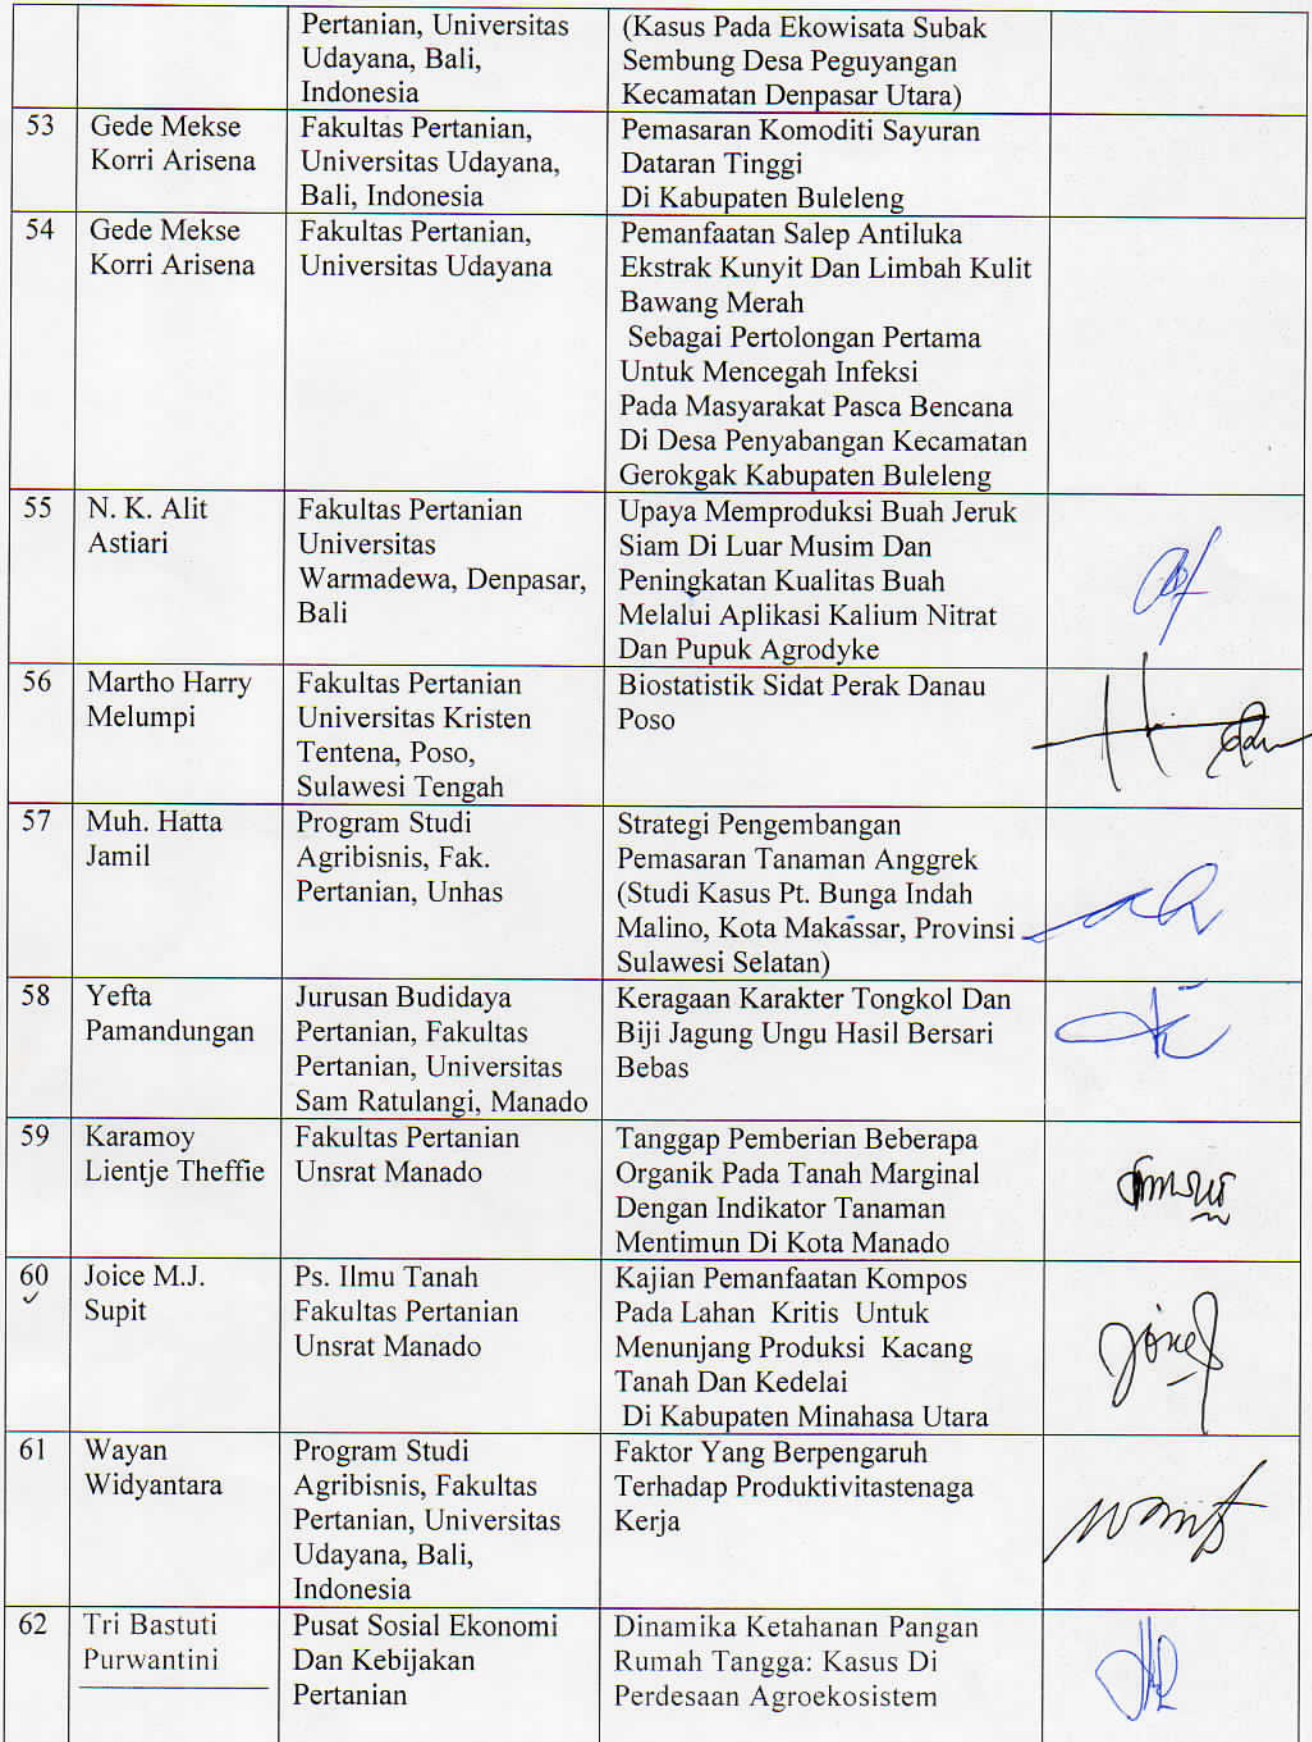 Pertanian, Universitas
Udayana, Bali,
Indonesia
(Kasus Pada Ekowisata Subak
Sembung Desa Peguyangan
Kecamatan Denpasar Utara)
53
Gede Mekse
Korri Arisena
Fakultas Pertanian,
Universitas Udayana,
Bali, Indonesia
Pemasaran Komoditi Sayuran
Dataran Tinggi
Di Kabupaten Buleleng
54
Gede Mekse
Korri Arisena
Fakultas Pertanian,
Universitas Udayana
Pemanfaatan Salep Antiluka
Ekstrak Kunyit Dan Limbah Kulit
Bawang Merah
Sebagai Pertolongan Pertama
Untuk Mencegah Infeksi
Pada Masyarakat Pasca Bencana
Di Desa Penyabangan Kecamatan
Gerokgak Kabupaten Buleleng
55
N. K. Alit
Astiari
Fakultas Pertanian
Universitas
Warmadewa, Denpasar,
Bali
Upaya Memproduksi Buah Jeruk
Siam Di Luar Musim Dan
Peningkatan Kualitas Buah
Melalui Aplikasi Kalium Nitrat
Dan Pupuk Agrodyke
56
Martho Harry
Melumpi
Fakultas Pertanian
Universitas Kristen
Tentena, Poso,
Sulawesi Tengah
Biostatistik Sidat Perak Danau
Poso
57
Muh. Hatta
Jamil
Program Studi
Agribisnis, Fak.
Pertanian, Unhas
Strategi Pengembangan
Pemasaran Tanaman Anggrek
(Studi Kasus Pt. Bunga Indah
Malino, Kota Makassar, Provinsi
Sulawesi Selatan)
58
Yefta
Pamandungan
Jurusan Budidaya
Pertanian, Fakultas
Pertanian, Universitas
Sam Ratulangi, Manado
Keragaan Karakter Tongkol Dan
Biji Jagung Ungu Hasil Bersari
Bebas
59
Karamoy
Lientje Theffie
Fakultas Pertanian
Unsrat Manado
Tanggap Pemberian Beberapa
Organik Pada Tanah Marginal
Dengan Indikator Tanaman
Mentimun Di Kota Manado
60
Joice M.J.
Supit
Ps. Ilmu Tanah
Fakultas Pertanian
Unsrat Manado
Kajian Pemanfaatan Kompos
Pada Lahan Kritis Untuk
Menunjang Produksi Kacang
Tanah Dan Kedelai
Di Kabupaten Minahasa Utara
61
Wayan
Widyantara
Program Studi
Agribisnis, Fakultas
Pertanian, Universitas
Udayana, Bali,
Indonesia
Faktor Yang Berpengaruh
Terhadap Produktivitastenaga
Kerja
62
Tri Bastuti
Purwantini
Pusat Sosial Ekonomi
Dan Kebijakan
Pertanian
Dinamika Ketahanan Pangan
Rumah Tangga: Kasus Di
Perdesaan Agroekosistem